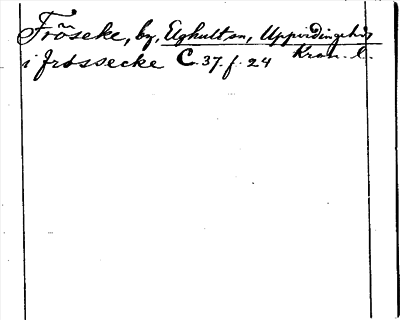 Fröseke, by, Elghult sn, Uppvidinge hd
Kron. l.
i frossecke C. 37. f. 24